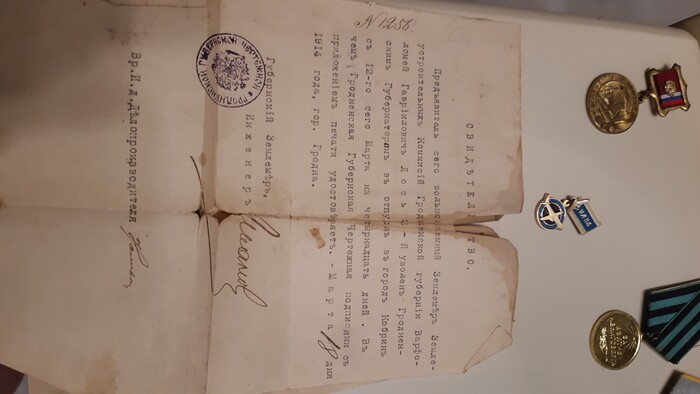 № 1256.
СВИДѢТЕЛЬСТВО.
Предъявитель сего вольнонаемный Землемѣръ Земле-
устроительныхъ Комисій Гродненской губерніи Варфо-
ломей Гавріиловичъ Лось 2-й уволенъ Гроднен-
скимъ Губернаторомъ въ отпускъ въ городъ Кобринъ
съ 12-го сего Марта на четырнадцать дней. Въ
чемъ Гродненская Губернская Чертежная подписями съ
приложеніемъ печати удостовѣряетъ. - Марта 18 дня
1914 года, гор. Гродна.
Губернскій Землемѣръ,
Инженеръ
Вр.И.д.Дѣлопроизводителя
ЗА
ВЗЯТИЕ